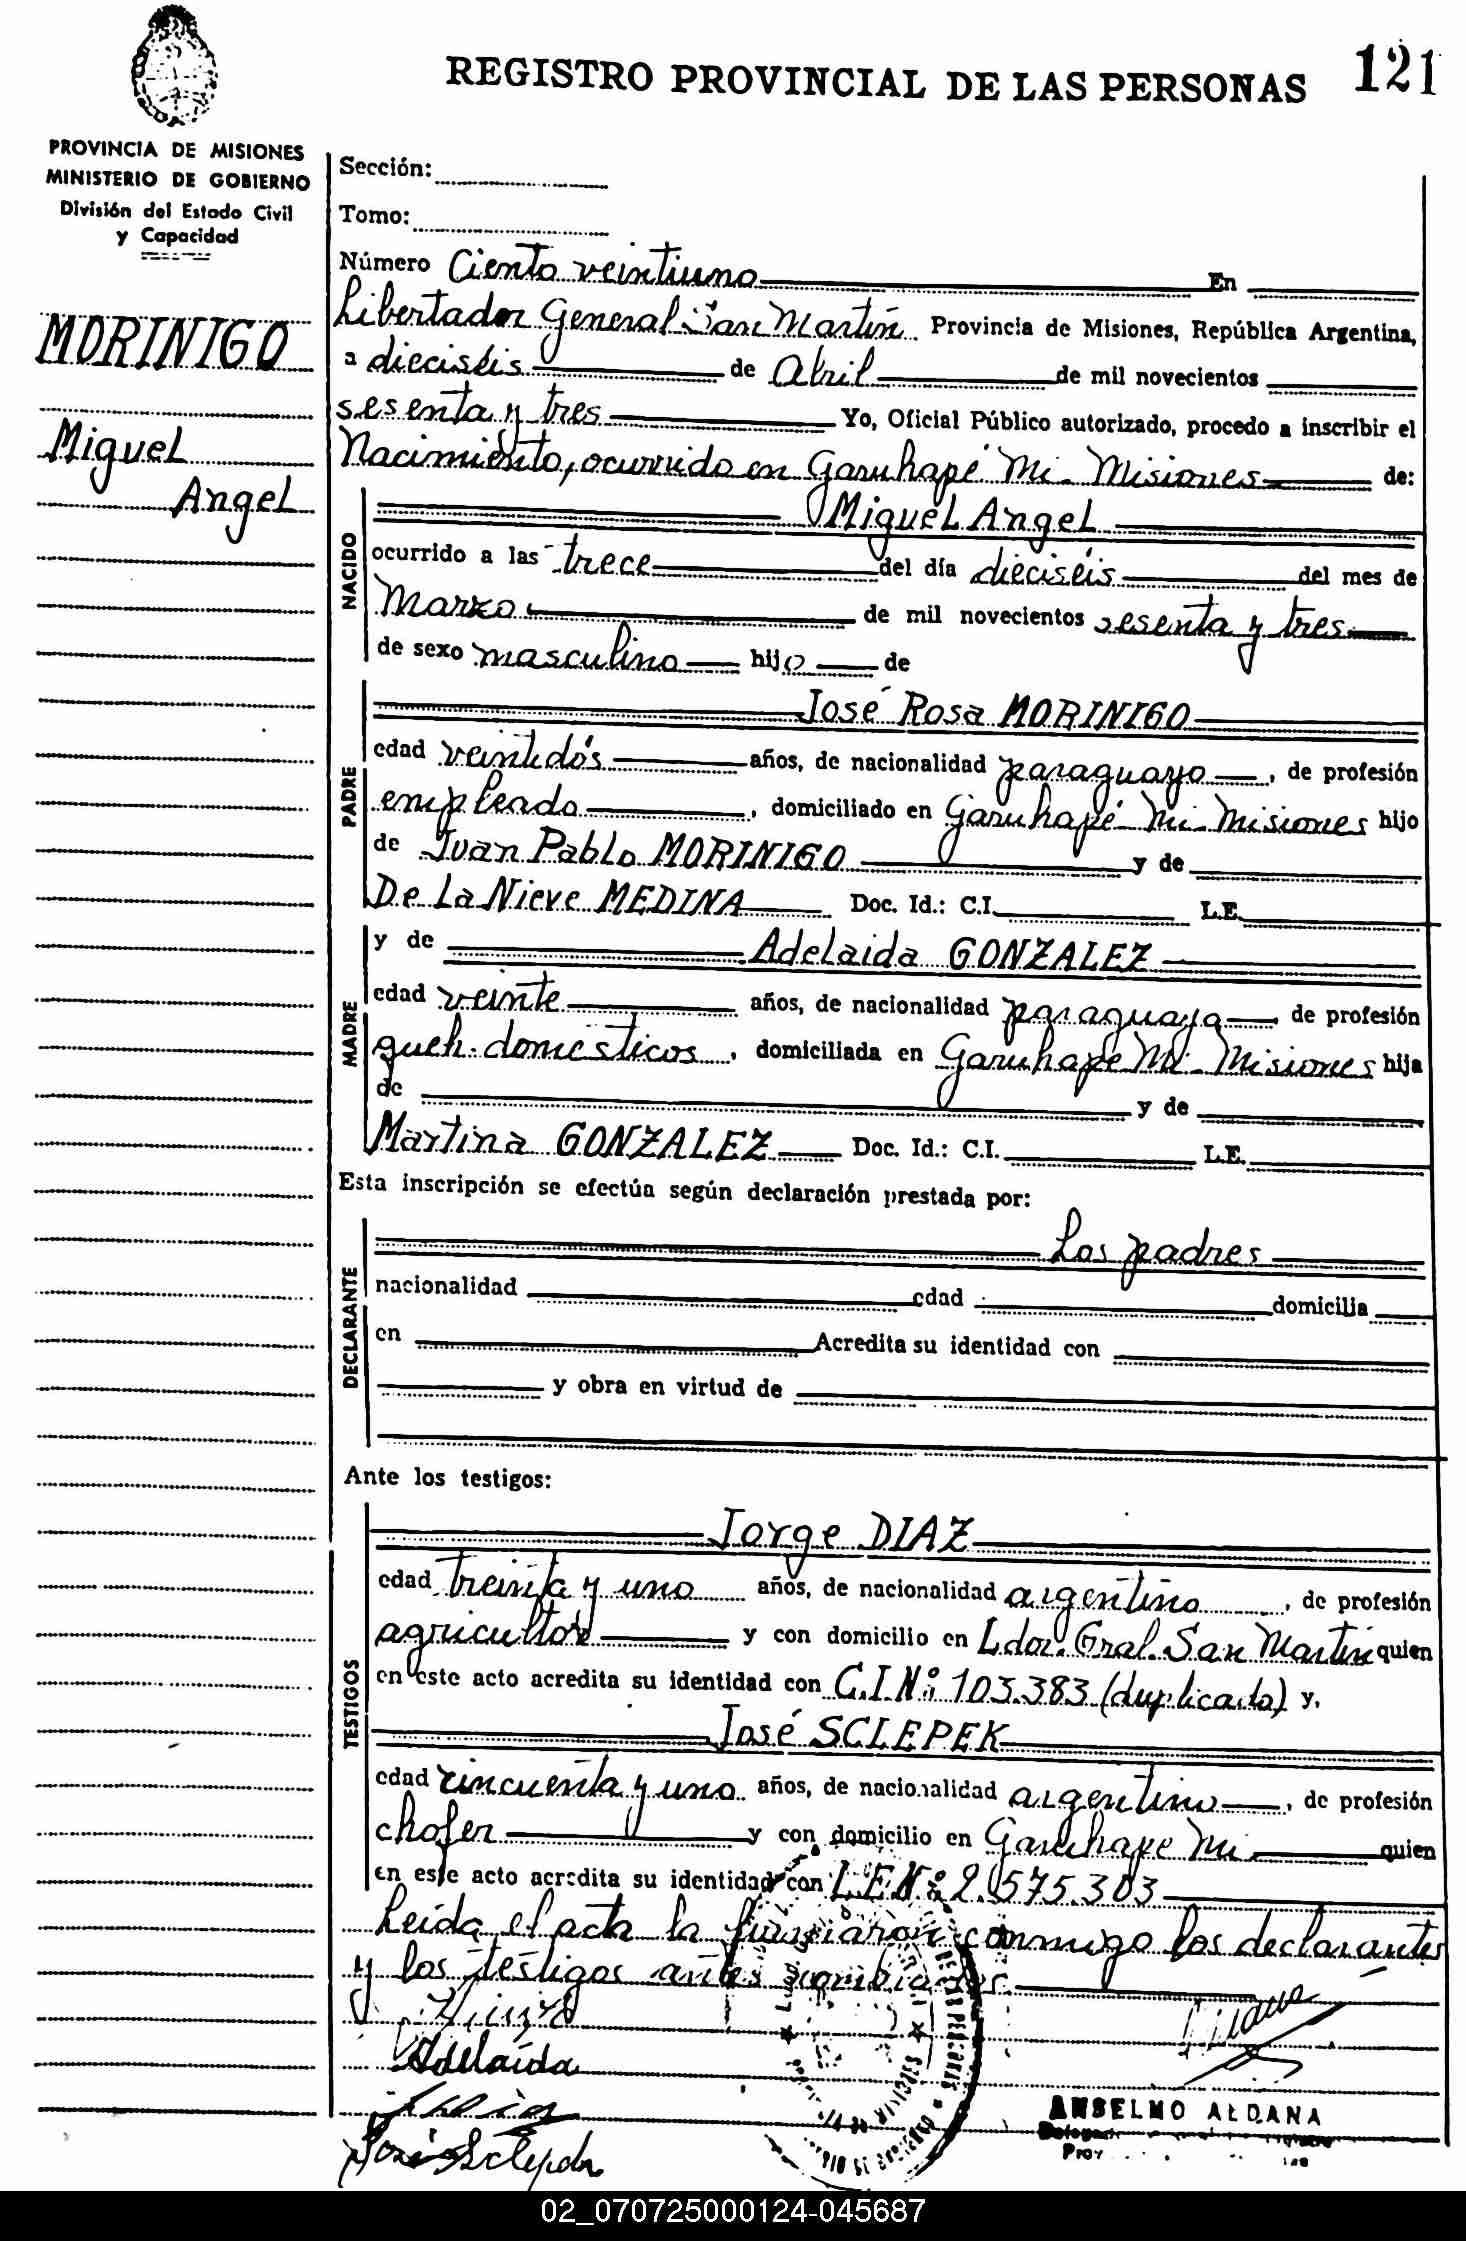 REGISTRO PROVINCIAL DE LAS PERSONAS 121
PROVINCIA DE MISIONES
MINISTERIO DE GOBIERNO
División del Estado Civil
y Capacidad
MORINIGO
Miguel
Angel
Sección:
Tomo:
Número Ciento veintiuno En
Libertador General San Martín Provincia de Misiones, República Argentina,
a dieciséis de Abril de mil novecientos
sesenta y tres Yo, Oficial Público autorizado, procedo a inscribir el
Nacimiento, ocurrido en Garuhapé Mi- Misiones de:
NACIDO
Miguel Angel
ocurrido a las trece del día dieciséis del mes de
Marzo de mil novecientos sesenta y tres
de sexo masculino hijo de
PADRE
José Rosa MORINIGO
edad veintidós años, de nacionalidad paraguayo, de profesión
empleado, domiciliado en Garuhapé Mi- Misiones hijo
de Juan Pablo MORINIGO y de
De La Nieve MEDINA Doc. Id.: C.I. L.E.
MADRE
y de Adelaida GONZALEZ
edad veinte años, de nacionalidad paraguaya, de profesión
queh. domésticos, domiciliada en Garuhapé Mi- Misiones hija
de y de
Martina GONZALEZ Doc. Id.: C.I. L.E.
Esta inscripción se efectúa según declaración prestada por:
DECLARANTE
Los padres
nacionalidad edad domicilia
en Acredita su identidad con
y obra en virtud de
Ante los testigos:
TESTIGOS
Jorge DIAZ
edad treinta y uno años, de nacionalidad argentino, de profesión
agricultor y con domicilio en Ldor. Gral. San Martín quien
en este acto acredita su identidad con C.I.Nº: 103.383 (duplicado) y,
José SCLEPEK
edad cincuenta y uno años, de nacionalidad argentino, de profesión
chofer y con domicilio en Garuhapé Mi quien
en este acto acredita su identidad con L.E.Nº: 2.575.303
Leída el acta la firmaron conmigo los declarantes
y los testigos antes nombrados.
Adelaida
José Sclepek
ANSELMO ALDANA
02_070725000124-045687